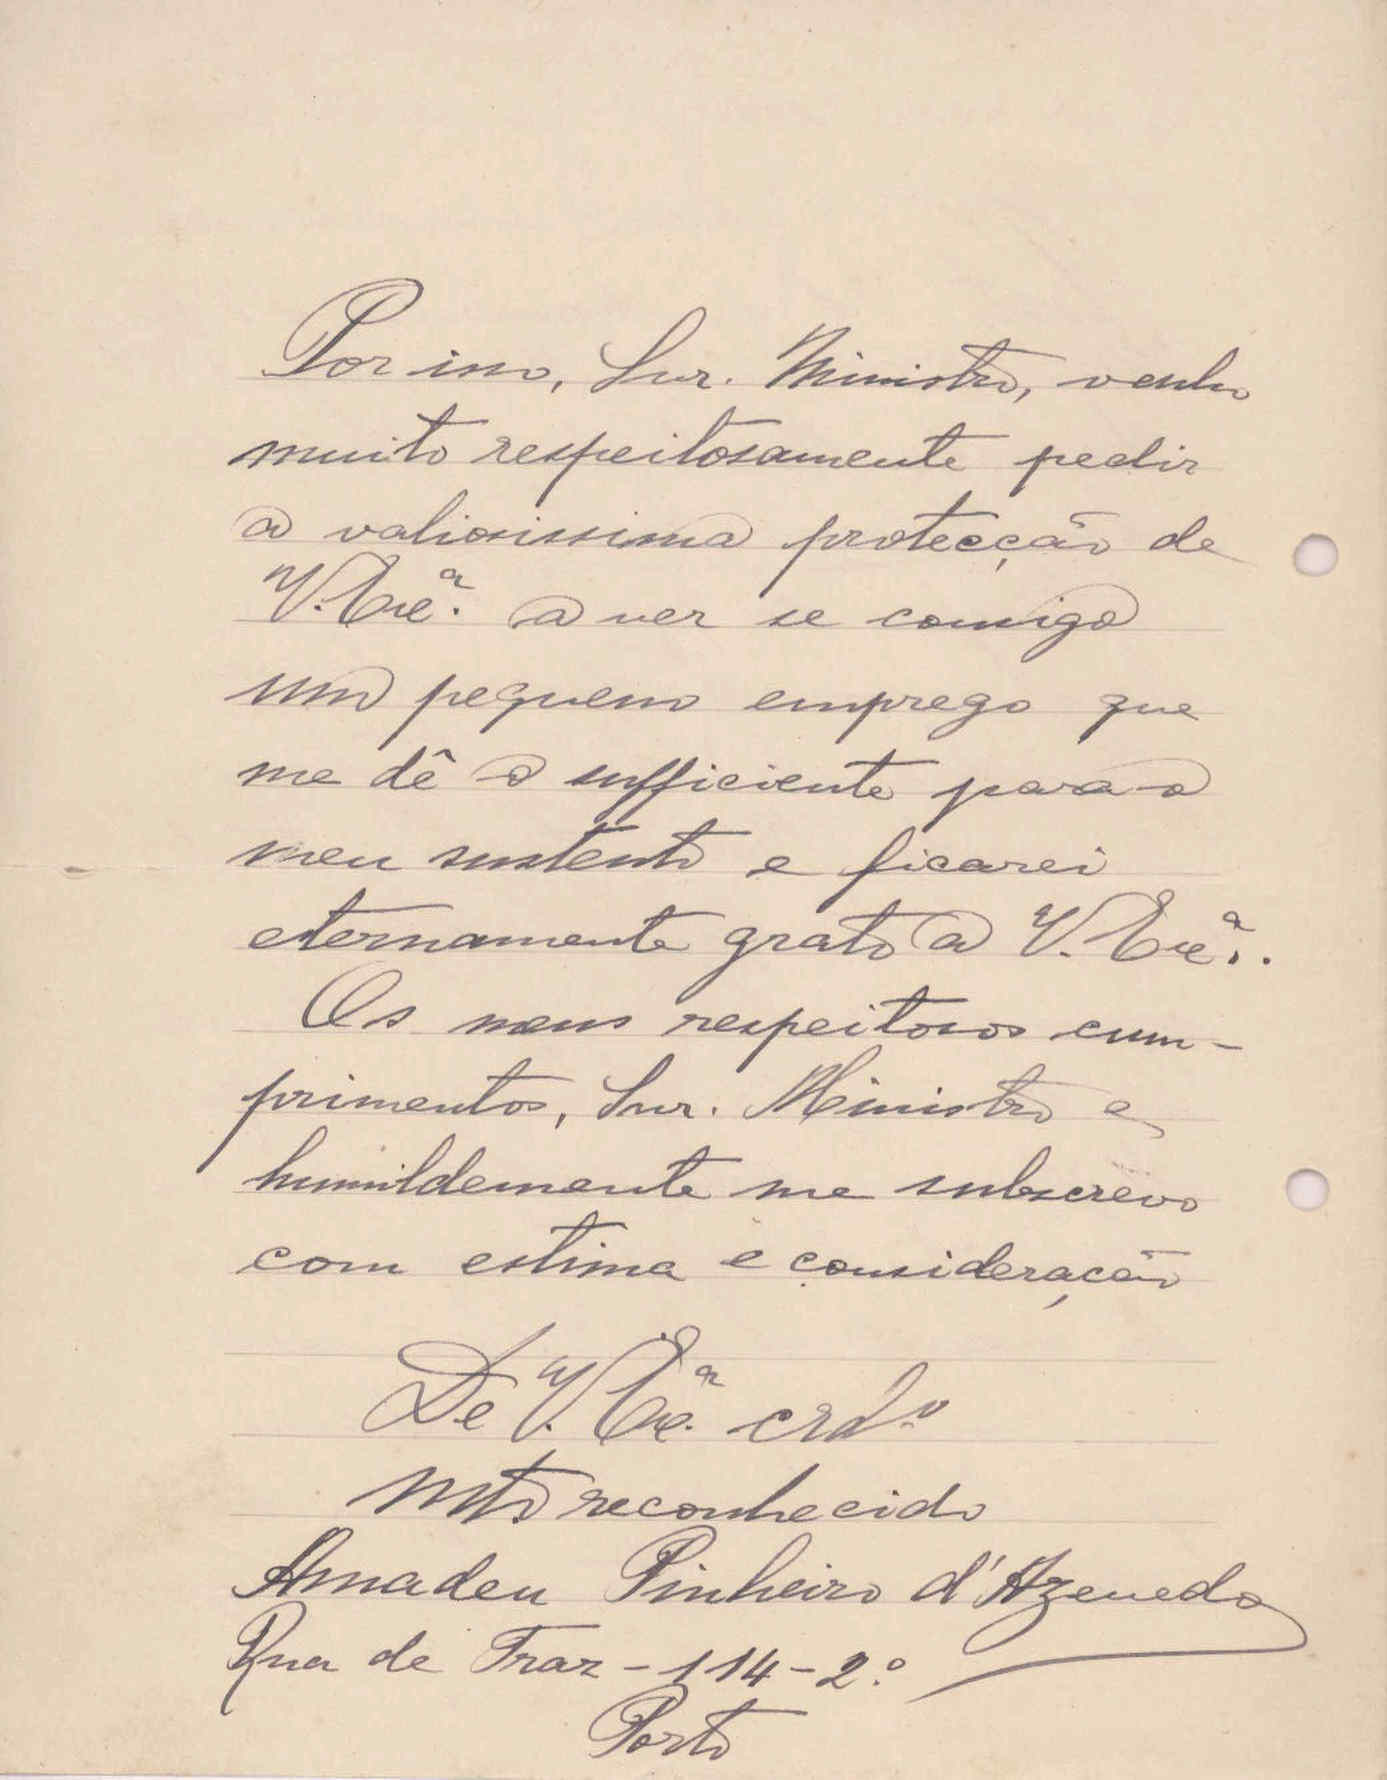 Por isso, Snr. Ministro, venho
muito respeitosamente pedir
a valiosissima protecção de
V. Exc.ª a ver se consigo
um pequeno emprego que
me dê o sufficiente para o
meu sustento e ficarei
eternamente grato a V. Exc.ª.
Os meus respeitosos cum-
primentos, Snr. Ministro e
humildemente me subscrevo
com estima e consideração
De V. Exc.ª crd.º
mto reconhecido
Amadeu Pinheiro d'Azevedo
Rua de Traz - 114 - 2.º
Porto